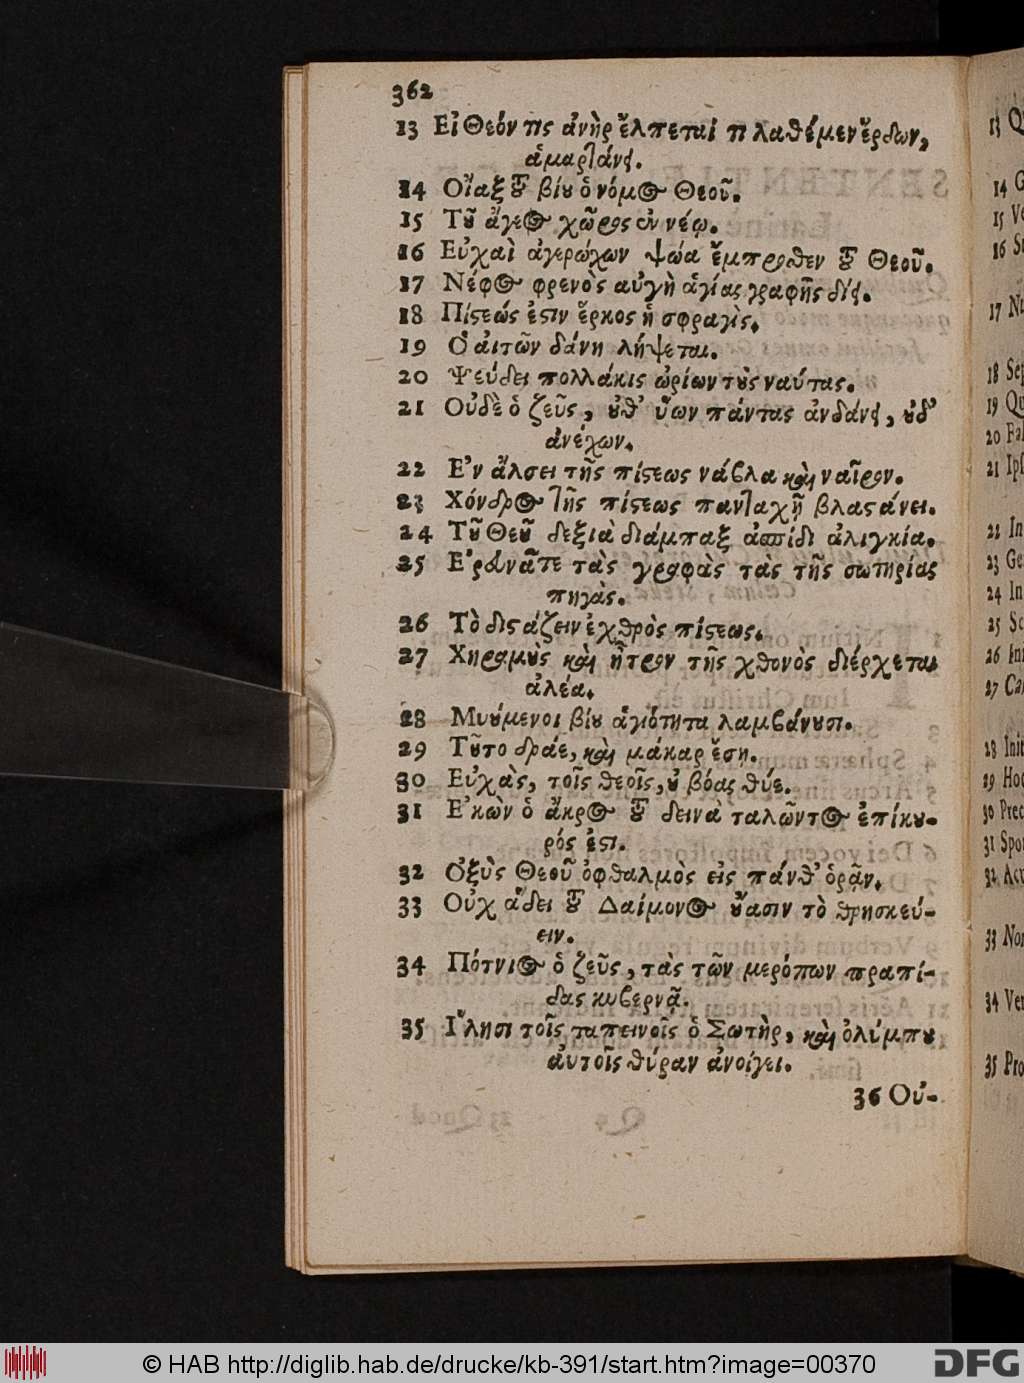 362
13 Εἰ Θεόν τις ἀνὴρ ἔλπεταί τι λαθέμεν ἔρδων,
ἁμαρτάνει.
14 Οἴαξ τοῦ βίου ὁ νόμος Θεοῦ.
15 Τοῦ ἄγεος χῶρος ἐν νέῳ.
16 Εὐχαὶ ἀγερώχων ψώα ἔμπροσθεν τοῦ Θεοῦ.
17 Νέφος φρενὸς αὐγὴ ἁγίας γραφῆς δίει.
18 Πίστεώς ἐστιν ἕρκος ἡ σφραγὶς.
19 Ὁ αἰτῶν δάνη λήψεται.
20 Ψεύδει πολλάκις ὠρίων τοὺς ναύτας.
21 Οὐδὲ ὁ ζεῦς, οὔθ' ὕων πάντας ἀνδάνει, οὐδ'
ἀνέχων.
22 Ἐν ἄλσει τῆς πίστεως νάβλα καὶ ναῖρον.
23 Χόνδρος τῆς πίστεως πανταχῆ βλαστάνει.
24 Τοῦ Θεοῦ δεξιὰ διάμπαξ ἀσπίδι ἀλιγκία.
25 Ἐρευνᾶτε τὰς γραφὰς τὰς τῆς σωτηρίας
πηγὰς.
26 Τὸ διστάζειν ἐχθρὸς πίστεως.
27 Χηραμοὺς καὶ ἦτρον τῆς χθονὸς διέρχεται
ἀλέα.
28 Μυούμενοι βίου ἁγιότητα λαμβάνουσι.
29 Τοῦτο δράε, καὶ μάκαρ ἔση.
30 Εὐχὰς, τοῖς θεοῖς, οὐ βόας θύε.
31 Ἑκὼν ὁ ἄκρος τοῦ δεινὰ ταλῶντος ἐπίκου-
ρός ἐστι.
32 Ὀξὺς Θεοῦ ὀφθαλμὸς εἰς πάνθ' ὁρᾷν.
33 Οὐχ ἅδει τοῦ Δαίμονος οὔασιν τὸ θρησκεύ-
ειν.
34 Πότνιος ὁ ζεῦς, τὰς τῶν μερόπων πραπί-
δας κυβερνᾷ.
35 Ἵλησι τοῖς ταπεινοῖς ὁ Σωτὴρ, καὶ ὀλύμπου
αὐτοῖς θύραν ἀνοίγει.
36 Οὐ-
© HAB http://diglib.hab.de/drucke/kb-391/start.htm?image=00370
DFG